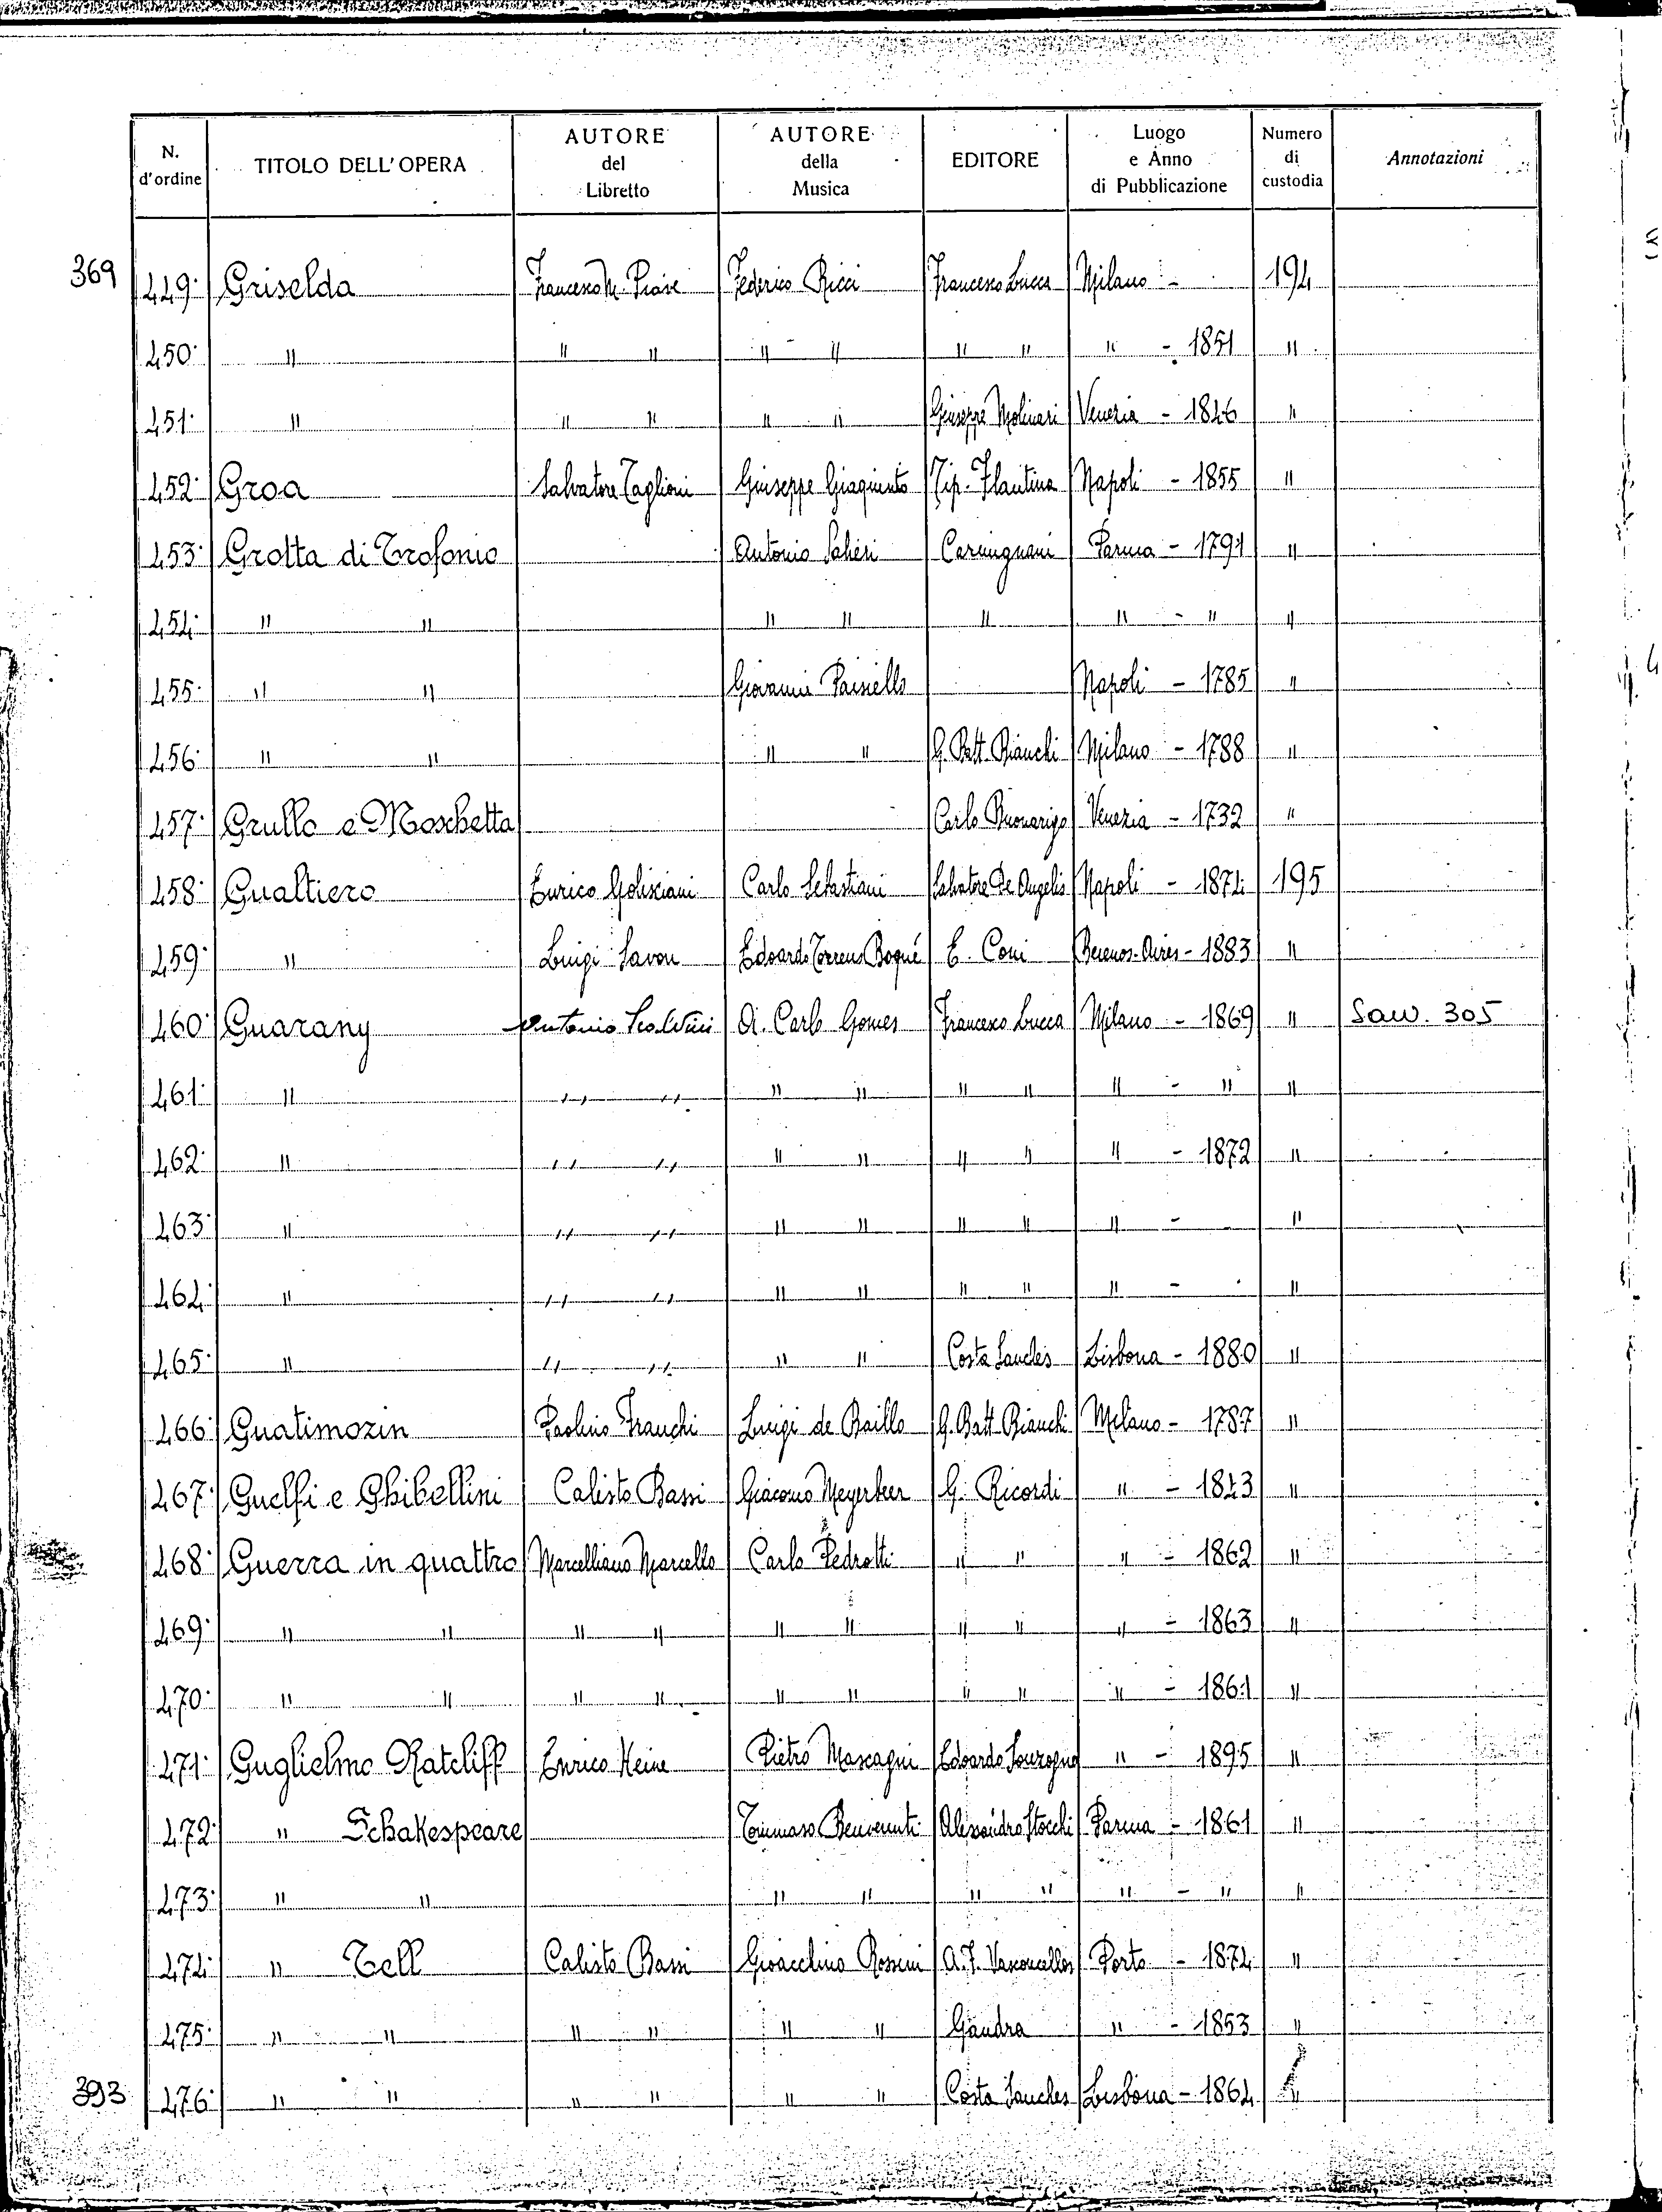 N. d'ordine | TITOLO DELL'OPERA | AUTORE del Libretto | AUTORE della Musica | EDITORE | Luogo e Anno di Pubblicazione | Numero di custodia | Annotazioni
369 449 Griselda Francesco M. Piave Federico Ricci Francesco Lucca Milano - 194
450 " " " " " " " " - 1851 "
451 " " " " " Giuseppe Molinari Venezia - 1846 "
452 Groa Salvatore Taglioni Giuseppe Giaquinto Tip. Flautina Napoli - 1855 "
453 Grotta di Trofonio Antonio Salieri Carmignani Parma - 1791 "
454 " " " " " " - " "
455 " " Giovanni Paisiello Napoli - 1785 "
456 " " " " G. Batt. Bianchi Milano - 1788 "
457 Grullo e Moschetta Carlo Buonarigo Venezia - 1732 "
458 Gualtiero Enrico Golisciani Carlo Sebastiani Salvatore De Angelis Napoli - 1874 195
459 " Luigi Savon Edoardo Torrens Boqué E. Coni Buenos-Aires - 1883 "
460 Guarany Antonio Scalvini A. Carlo Gomes Francesco Lucca Milano - 1869 " Saw. 305
461 " " " " " " " " - " "
462 " " " " " " " " - 1872 "
463 " " " " " " " " - "
464 " " " " " " " " - "
465 " " " " " Costa Sanches Lisbona - 1880 "
466 Guatimozin Paolino Franchi Luigi de Baillo G. Batt. Bianchi Milano - 1787 "
467 Guelfi e Ghibellini Calisto Bassi Giacomo Meyerbeer G. Ricordi " - 1843 "
468 Guerra in quattro Marcelliano Marcello Carlo Pedrotti " " " - 1862 "
469 " " " " " " " " " - 1863 "
470 " " " " " " " " " - 1861 "
471 Guglielmo Ratcliff Enrico Heine Pietro Mascagni Edoardo Sonzogno " - 1895 "
472 " Schakespeare Tommaso Benvenuti Alessandro Stocchi Parma - 1861 "
473 " " " " " " " - " "
474 " Tell Calisto Bassi Gioacchino Rossini A. F. Vasconcellos Porto - 1874 "
475 " " " " " " Gandra " - 1853 "
393 476 " " " " " " Costa Sanches Lisbona - 1864 "